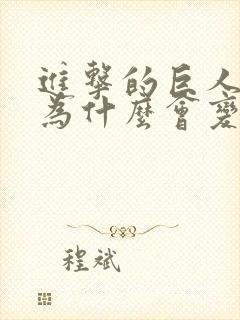 進擊的巨人
為什麼會變
程斌